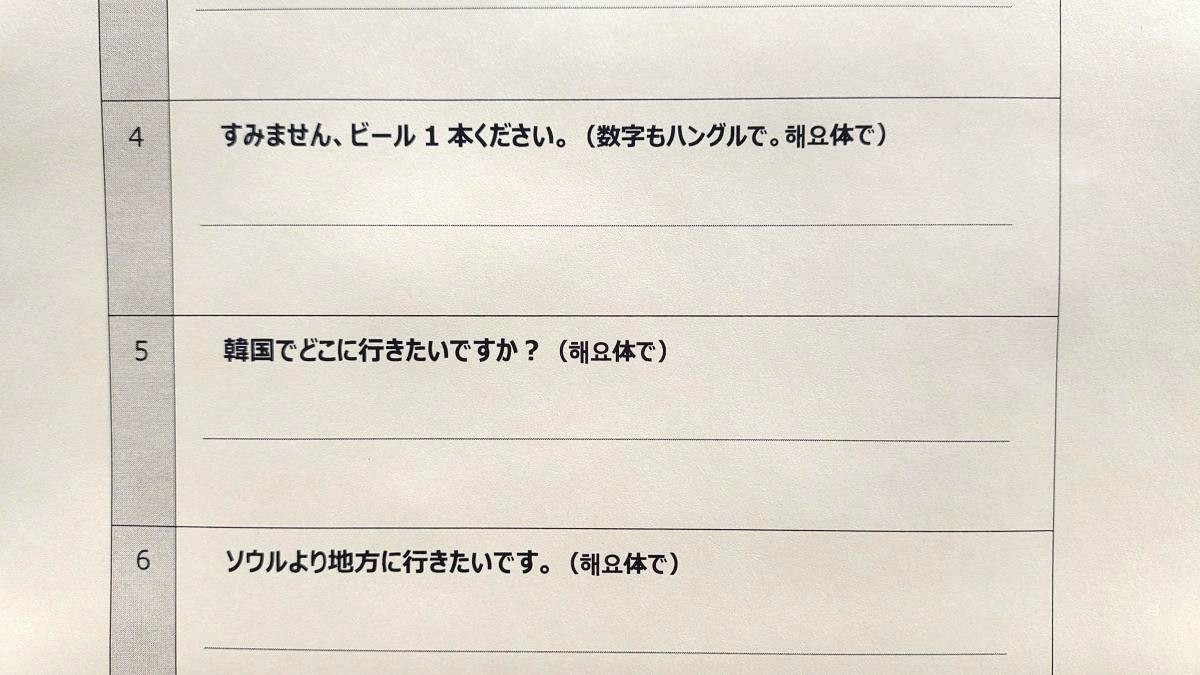 4 すみません、ビール 1 本ください。（数字もハングルで。해요体で）
5 韓国でどこに行きたいですか？（해요体で）
6 ソウルより地方に行きたいです。（해요体で）